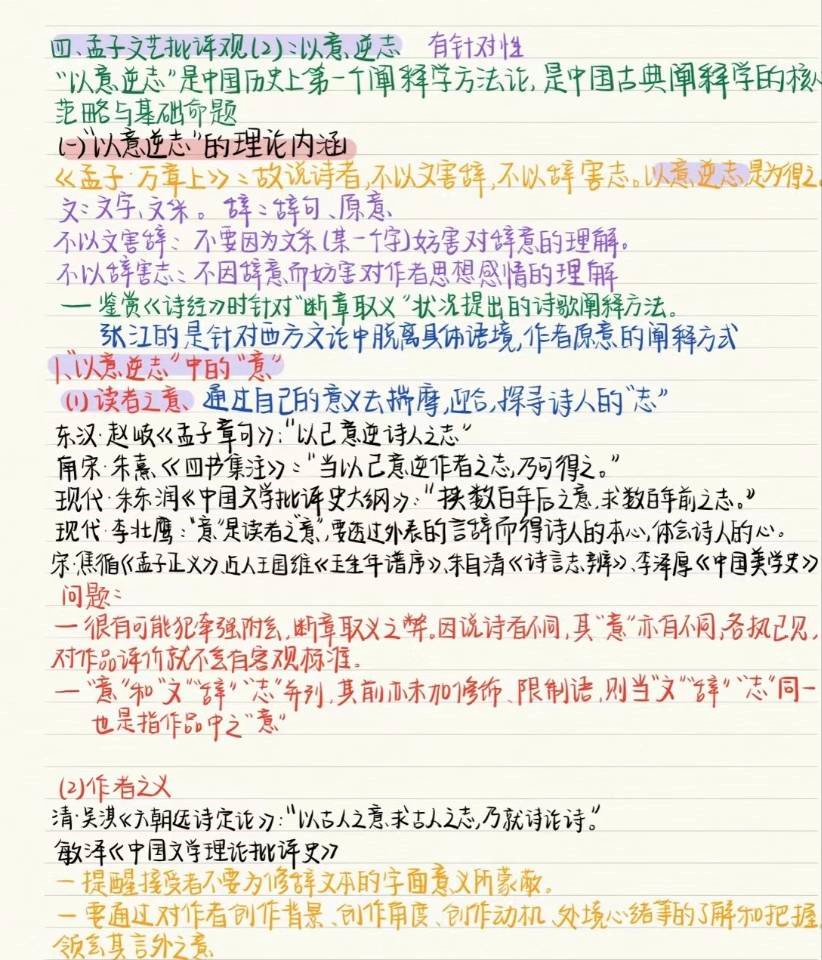 四、孟子文艺批评观(2)：以意逆志 有针对性
“以意逆志”是中国历史上第一个阐释学方法论,是中国古典阐释学的核心
范畴与基础命题
(一)“以意逆志”的理论内涵
《孟子·万章上》：故说诗者,不以文害辞,不以辞害志。以意逆志,是为得之。
文：文字、文采。辞：辞句、原意
不以文害辞：不要因为文采(某一个字)妨害对辞意的理解。
不以辞害志：不因辞意而妨害对作者思想感情的理解
一 鉴赏《诗经》时针对“断章取义”状况提出的诗歌阐释方法。
张江的是针对西方文论中脱离具体语境,作者原意的阐释方式
1、“以意逆志”中的“意”
(1)读者之意、通过自己的意义去揣摩,迎合,探寻诗人的“志”
东汉·赵岐《孟子章句》：“以己意逆诗人之志”
南宋·朱熹《四书集注》：“当以己意逆作者之志,乃可得之。”
现代·朱东润《中国文学批评史大纲》：“挟数百年后之意,求数百年前之志。”
现代·李壮鹰：“意”是读者之“意”,要透过外表的言辞而得诗人的本心,体会诗人的心。
宋·焦循《孟子正义》,近人王国维《玉生年谱序》、朱自清《诗言志辨》、李泽厚《中国美学史》
问题：
一 很有可能犯牵强附会,断章取义之弊。因说诗者不同,其“意”亦有不同,各执己见,
对作品评价就不会有客观标准。
一 “意”和“文”“辞”“志”并列,其前亦未加修饰、限制语,则当“文”“辞”“志”同一
也是指作品中之“意”
(2)作者之义
清·吴淇《六朝选诗定论》：“以古人之意求古人之志,乃就诗论诗。”
敏泽《中国文学理论批评史》
一 提醒接受者不要为修辞文本的字面意义所蒙蔽。
一 要通过对作者创作背景、创作角度、创作动机、处境心绪等的了解和把握,
领会其言外之意